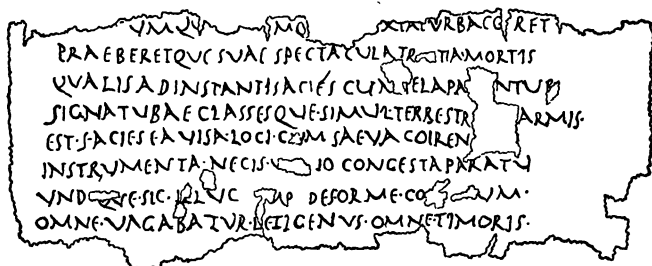 UMQU MO XIATURBACO RET
PRAEBERETQUE SUAE SPECTACULATR TIA·MORTIS
QUALIS AD INSTANTIS ACIES CUM TELAPA NTUR
SIGNA TUBAE CLASSESQUE·SIMUL·TERRESTR ARMIS·
EST·SACIES EA VISA·LOCI·CUM SAEVA COIREN
INSTRUMENTA·NECIS·V IO CONGESTA PARATU
UND QUE·SIC·ILLUC AP DEFORME·CO UM·
OMNE·VAGABATUR·LETI GENUS·OMNE TIMORIS·